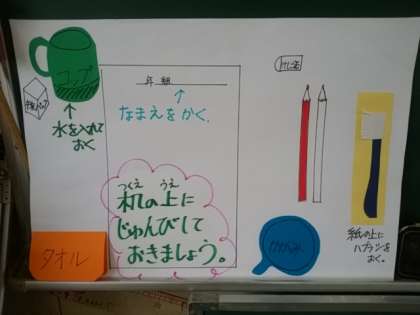 コップ
牛乳パック
水を入れて
おく
年 組
なまえをかく.
けしゴム
つくえ うえ
机の上に
じゅんびして
おきましょう。
タオル
かがみ
紙の上に
ハブラシを
おく。